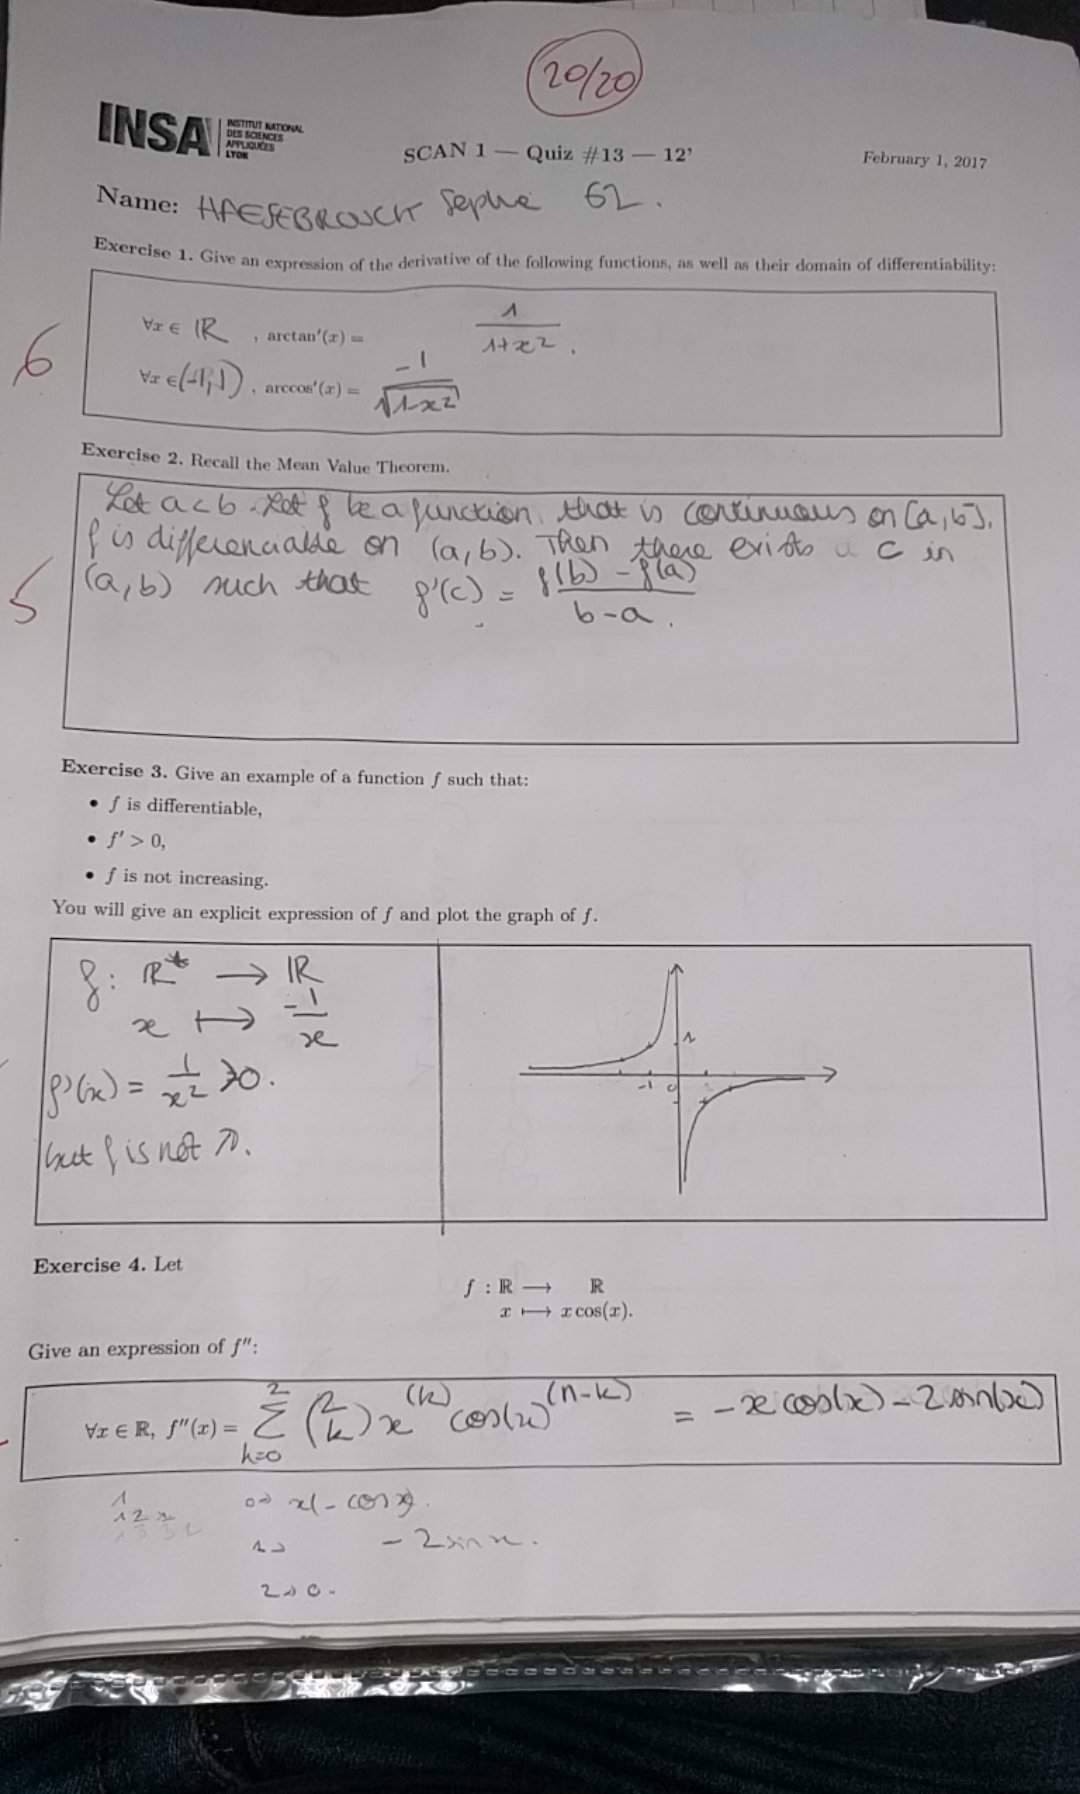 20/20
INSA INSTITUT NATIONAL
DES SCIENCES
APPLIQUÉES
LYON
SCAN 1 — Quiz #13 — 12'
February 1, 2017
Name: HAESEBROUCK Sophie 62.
Exercise 1. Give an expression of the derivative of the following functions, as well as their domain of differentiability:
6
∀x ∈ ℝ, arctan'(x) = 1/(1+x²).
∀x ∈ (-1,1), arccos'(x) = -1/√(1-x²)
Exercise 2. Recall the Mean Value Theorem.
5
Let a<b. Let f be a function that is continuous on [a,b].
f is differenciable on (a,b). Then there exists a c in
(a,b) such that f'(c) = (f(b) - f(a))/(b-a).
Exercise 3. Give an example of a function f such that:
• f is differentiable,
• f' > 0,
• f is not increasing.
You will give an explicit expression of f and plot the graph of f.
f: ℝ* → ℝ
x ↦ -1/x
f'(x) = 1/x² >0.
but f is not ↗.
1
-1 0
Exercise 4. Let
f : ℝ ⟶ ℝ
x ⟼ x cos(x).
Give an expression of f'':
∀x ∈ ℝ, f''(x) = ∑_{k=0}^{2} (2 k) x^(k) cos(x)^(n-k) = -x cos(x) - 2 sin(x)
0→ x(-cos x).
1→ - 2 sin x.
2→ 0.